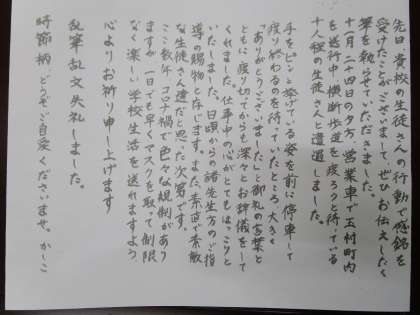 先日、貴校の生徒さんの行動で感銘を
受けたことがございまして、ぜひお伝えしたく
筆を執らせていただきました。
十一月二十四日の夕方、営業車で玉村町内
を送行中、横断歩道を渡ろうと待っている
十人程の生徒さんと遭遇しました。
手をピンと挙げている姿を前に停車して
渡り終わるのを待っていたところ、大きく
「ありがとうございました」御礼の言葉と
ともに渡り切ってからも深々とお辞儀をして
くれました。仕事中の心がとてもほっこりと
いたしました。日頃からの諸先生方のご指
導の賜物と存じます。また、素直で素敵
な生徒さん達だと思った次第です。
ここ数年、コロナ禍で色々な規制があり
ますが、一日でも早くマスクを取って制限
なく楽しい学校生活を送れますよう
心よりお祈り申し上げます
乱筆乱文失礼しました。
時節柄、どうぞご自愛くださいませ。かしこ